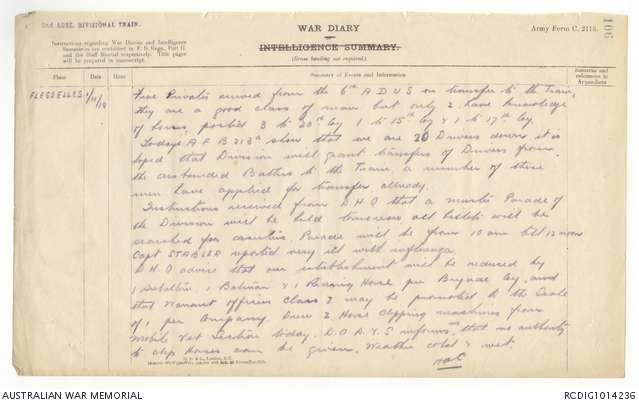 2nd AUST. DIVISIONAL TRAIN.
WAR DIARY
or
INTELLIGENCE SUMMARY.
(Erase heading not required.)
Army Form C. 2118.
106
Instructions regarding War Diaries and Intelligence
Summaries are contained in F. S. Regs., Part II.
and the Staff Manual respectively. Title pages
will be prepared in manuscript.
Place
Date
Hour
Summary of Events and Information
Remarks and
references to
Appendices
FLESSELLES 1/11/18
Five Privates arrived from the 6th A D U S on transfer to the Train,
they are a good class of man but only 2 have knowledge
of horses, posted 3 to 20th Coy 1 to 15th Coy & 1 to 17th Coy
Todays A F B 213 show that we are 20 Drivers down, it is
hoped that Division will grant transfers of Drivers from
the disbanded Battns to the Train, a number of these
men have applied for transfer already.
Instructions received from D H Q that a muster Parade of
the Division will be held tomorrow all billets will be
searched for absentees. Parade will be from 10 am till 12 noon
Capt STABLER reported very ill with influenza.
D H Q advise that our establishment will be reduced by
1 1 Batman & 1 Riding Horse per Brigade Coy, and
that Warrant Officers Class 2 may be promoted to the Scale
of 1 per Company. Drew 2 Horse clipping machines from
Mobile Vet Section today. D.D.V.S informs that no authority
to clip Horses can be given. Weather cold & wet.